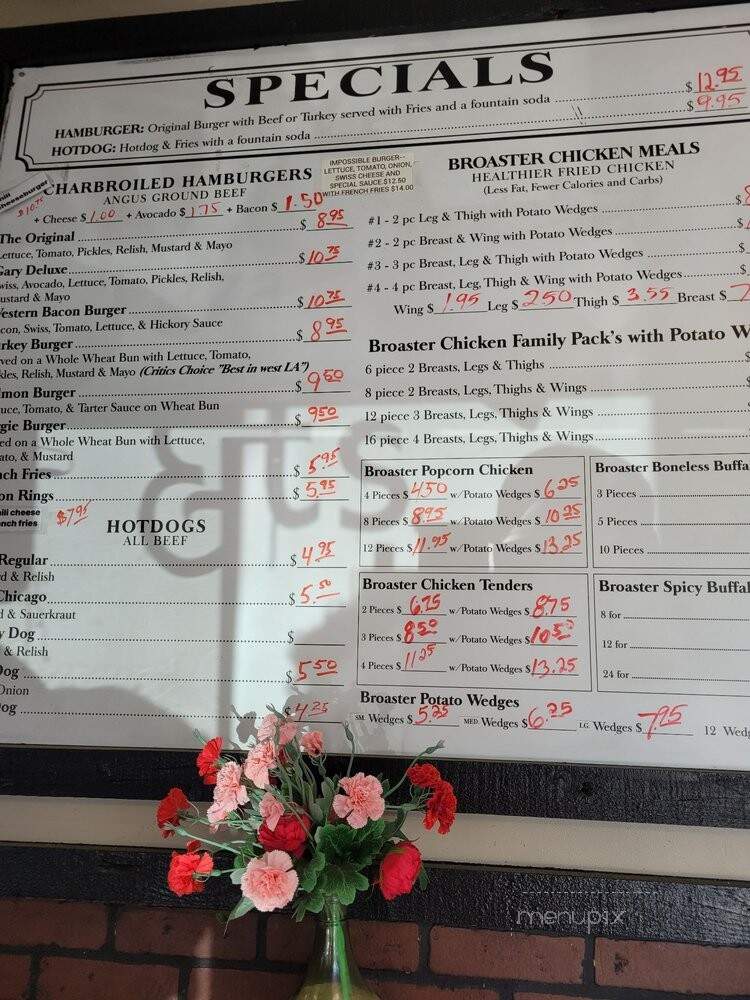 SPECIALS
HAMBURGER: Original Burger with Beef or Turkey served with Fries and a fountain soda $ 12.95
HOTDOG: Hotdog & Fries with a fountain soda $ 9.95
IMPOSSIBLE BURGER--
LETTUCE, TOMATO, ONION,
SWISS CHEESE AND
SPECIAL SAUCE $12.50
WITH FRENCH FRIES $14.00
cheeseburger
$10.75
CHARBROILED HAMBURGERS
ANGUS GROUND BEEF
+ Cheese $ 1.00 + Avocado $ 1.75 + Bacon $ 1.50
The Original $ 8.95
Lettuce, Tomato, Pickles, Relish, Mustard & Mayo
Gary Deluxe $ 10.75
Swiss, Avocado, Lettuce, Tomato, Pickles, Relish,
Mustard & Mayo
Western Bacon Burger $ 10.75
Bacon, Swiss, Tomato, Lettuce, & Hickory Sauce
Turkey Burger $ 8.95
ved on a Whole Wheat Bun with Lettuce, Tomato,
kles, Relish, Mustard & Mayo (Critics Choice "Best in west LA")
lmon Burger $ 9.50
uce, Tomato, & Tarter Sauce on Wheat Bun
gie Burger $ 9.50
ed on a Whole Wheat Bun with Lettuce,
ato, & Mustard
nch Fries $ 5.95
on Rings $ 5.95
ili cheese
ench fries $7.95
HOTDOGS
ALL BEEF
Regular $ 4.95
rd & Relish
Chicago $ 5.50
d & Sauerkraut
y Dog $
& Relish
Dog $ 5.50
Onion
og $ 4.25
BROASTER CHICKEN MEALS
HEALTHIER FRIED CHICKEN
(Less Fat, Fewer Calories and Carbs)
#1 - 2 pc Leg & Thigh with Potato Wedges $
#2 - 2 pc Breast & Wing with Potato Wedges $
#3 - 3 pc Breast, Leg & Thigh with Potato Wedges $
#4 - 4 pc Breast, Leg, Thigh & Wing with Potato Wedges $
Wing $ 1.95 Leg $ 2.50 Thigh $ 3.55 Breast $
Broaster Chicken Family Pack's with Potato W
6 piece 2 Breasts, Legs & Thighs $
8 piece 2 Breasts, Legs, Thighs & Wings
12 piece 3 Breasts, Legs, Thighs & Wings $
16 piece 4 Breasts, Legs, Thighs & Wings
Broaster Popcorn Chicken
4 Pieces $ 4.50 w/Potato Wedges $ 6.25
8 Pieces $ 8.95 w/Potato Wedges $ 10.25
12 Pieces $ 11.95 w/Potato Wedges $ 13.25
Broaster Boneless Buffa
3 Pieces
5 Pieces
10 Pieces
Broaster Chicken Tenders
2 Pieces $ 6.75 w/Potato Wedges $ 8.75
3 Pieces $ 8.50 w/Potato Wedges $ 10.50
4 Pieces $ 11.25 w/Potato Wedges $ 13.25
Broaster Spicy Buffal
8 for
12 for
24 for
Broaster Potato Wedges
SM. Wedges $ 5.25 MED. Wedges $ 6.25 LG. Wedges $ 7.95 12 Wedg
menupix